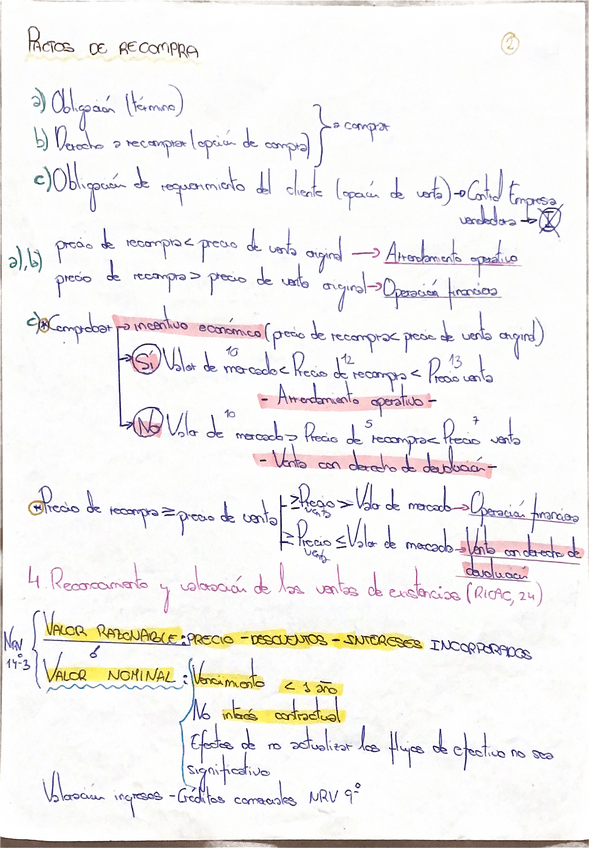 PACTOS DE RECOMPRA
2
a) Obligación (término)
b) Derecho a recomprar (opción de compra) } → comprar
c) Obligación de requerimiento del cliente (opción de venta) → Control Empresa
vendedora →
a), b) precio de recompra < precio de venta original → Arrendamiento operativo
precio de recompra > precio de venta original → Operación financiera
c) * Comprobar → incentivo económico (precio de recompra < precio de venta original)
10 12 13
→ Sí Valor de mercado < Precio de recompra < Precio venta
- Arrendamiento operativo -
10 5 7
→ No Valor de mercado > Precio de recompra < Precio venta
- Venta con derecho de devolución -
* Precio de recompra ≥ precio de venta ≥ Precio > Valor de mercado → Operación financiera
≥ Precio ≤ Valor de mercado → Venta con derecho de
devolución
4. Reconocimiento y valoración de las ventas de existencias (RICAC, 24)
NRV 14ª3 { VALOR RAZONABLE: PRECIO - DESCUENTOS - INTERESES INCORPORADOS
ó
VALOR NOMINAL: Vencimiento < 1 año
No interés contractual
Efectos de no actualizar los flujos de efectivo no sea
significativo
Valoración ingresos - Créditos comerciales NRV 9ª